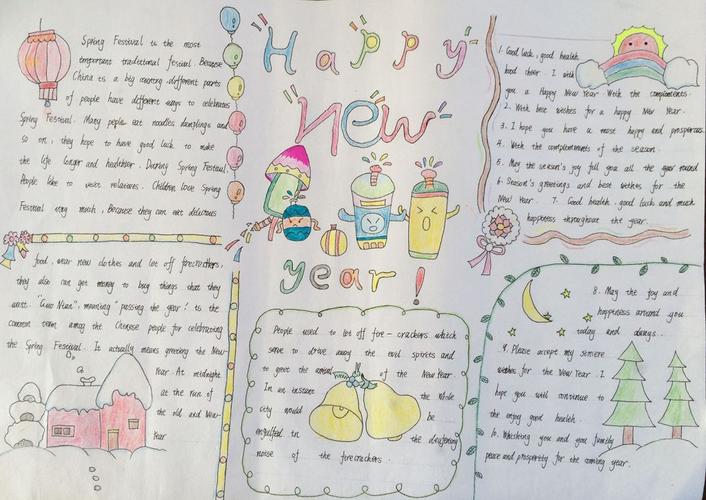 Happy
New
year!
Spring Festival is the most
important traditional festival Because
China is a big country different parts
of people have different ways to celebrates
Spring Festival. Many peple eat noodles dumplings and
so on, they hope to have good luck to make
the life longer and healthier. During Spring Festival
People like to visit relatives. Children love Spring
Festival very much, Because they can eat delicious
food, wear new clothes and lot off firecrackers,
they also can get money to bug things that they
want. "Guo Nian", meaning "passing the year" is the
common term among the Chinese people for celebrating
the Spring Festival. It actually means greeting the New
Year. At midnight
at the turn of
the old and New
Year
People used to let off fire-crackers which
serve to drive away the evil spirits and
to greet the arrival of the New Year.
In an instant the whole
city would be
engulfed in the deafening
noise of the firecrackers.
1. Good luck, good health
hood cheer. I wish
you a Happy New Year. With the compliments.
2. With best wishes for a happy New Year.
3. I hope you have a most happy and prosperous.
4. With the compliments of the season.
5. May the season's joy full you all the year round
6. Season's greetings and best wishes for the
New Year. 7. Good health, good luck and much
happiness throughout the year.
8. May the joy and
happiness around you
today and always.
9. Please accept my semere
wishes for the New Year. I
hope you will continue to
the enjoy good health.
10. Whishing you and you family
peace and prosperity for the coming year.